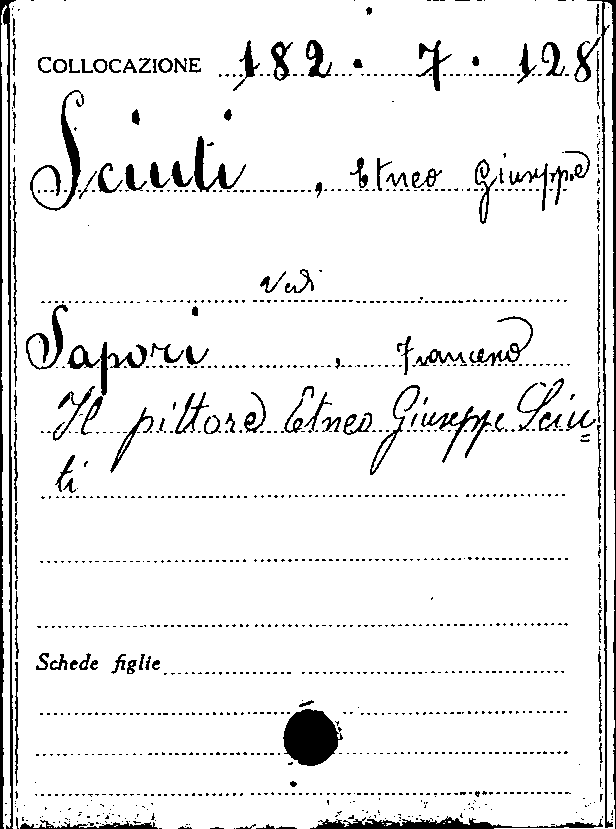 COLLOCAZIONE 182 . 7 . 128
Sciuti , Etneo Giuseppe
Vedi
Sapori , Francesco
Il pittore Etneo Giuseppe Sciu=
ti
Schede figlie